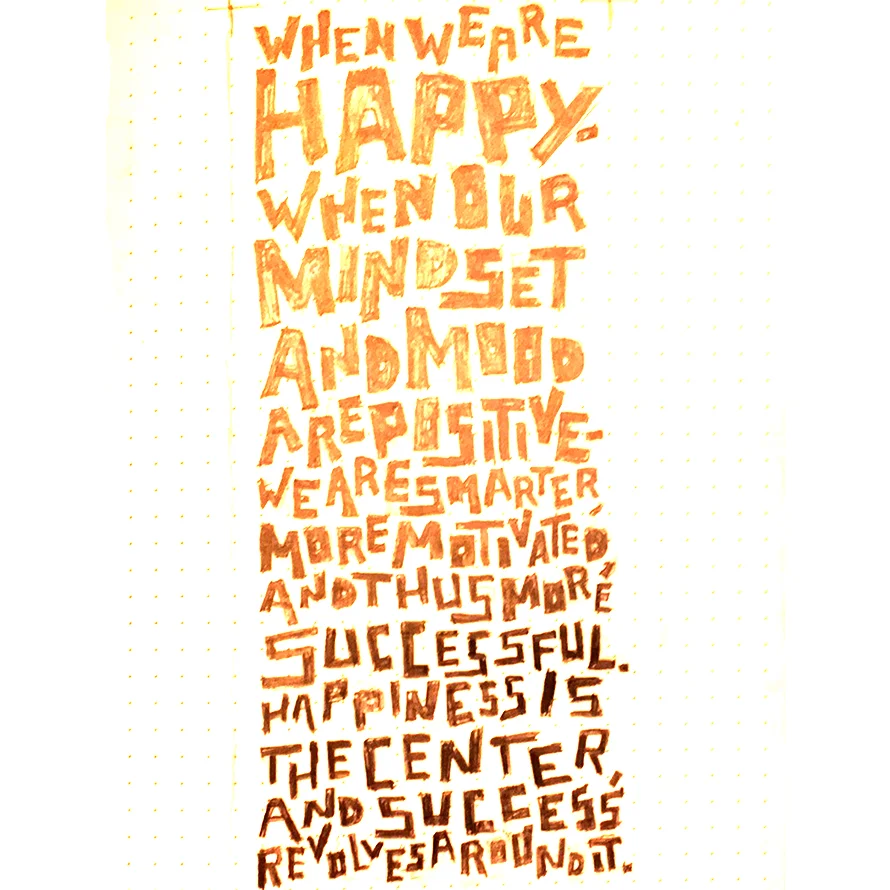 WHEN WE ARE
HAPPY.
WHEN OUR
MINDSET
AND MOOD
ARE POSITIVE-
WE ARE SMARTER,
MORE MOTIVATED,
AND THUS MORE
SUCCESSFUL.
HAPPINESS IS
THE CENTER,
AND SUCCESS
REVOLVES AROUND IT.